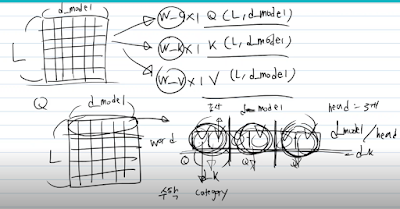 d_model
L
W_q x 1 Q (L, d_model)
W_k x 1 K (L, d_model)
W_v x 1 V (L, d_model)
Q
d_model
L
word
d_model
head = 3개
d_model/head
= d_k
Q
Q
Q
d_k
category